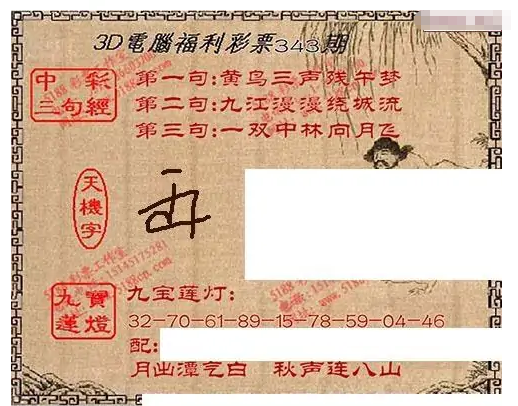 3D電腦福利彩票343期
中彩
三句經
第一句:黄鸟三声残午梦
第二句:九江漫漫绕城流
第三句:一双中林向月飞
天機字
九寶
蓮燈
九宝莲灯:
32-70-61-89-15-78-59-04-46
配:
月出潭气白 秋声连八山